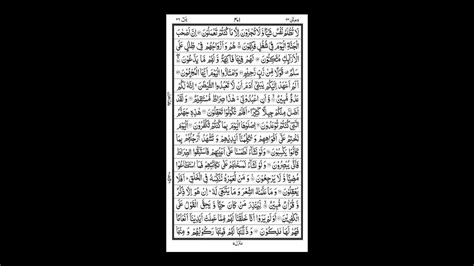 لَا تُظْلَمُ نَفْسٌ شَيْئًا وَّلَا تُجْزَوْنَ اِلَّا مَا كُنْتُمْ تَعْمَلُوْنَ ۝ اِنَّ اَصْحٰبَ
الْجَنَّةِ الْيَوْمَ فِيْ شُغُلٍ فٰكِهُوْنَ ۝ هُمْ وَاَزْوَاجُهُمْ فِيْ ظِلٰلٍ عَلَى
الْاَرَآئِكِ مُتَّكِـُٔوْنَ ۝ لَهُمْ فِيْهَا فَاكِهَةٌ وَّلَهُمْ مَّا يَدَّعُوْنَ ۝
سَلٰمٌ قَوْلًا مِّنْ رَّبٍّ رَّحِيْمٍ ۝ وَامْتَازُوا الْيَوْمَ اَيُّهَا الْمُجْرِمُوْنَ ۝
اَلَمْ اَعْهَدْ اِلَيْكُمْ يٰبَنِيْٓ اٰدَمَ اَنْ لَّا تَعْبُدُوا الشَّيْطٰنَ اِنَّهٗ لَكُمْ
عَدُوٌّ مُّبِيْنٌ ۝ وَّاَنِ اعْبُدُوْنِيْ هٰذَا صِرَاطٌ مُّسْتَقِيْمٌ ۝ وَلَقَدْ
اَضَلَّ مِنْكُمْ جِبِلًّا كَثِيْرًا اَفَلَمْ تَكُوْنُوْا تَعْقِلُوْنَ ۝ هٰذِهٖ جَهَنَّمُ
الَّتِيْ كُنْتُمْ تُوْعَدُوْنَ ۝ اِصْلَوْهَا الْيَوْمَ بِمَا كُنْتُمْ تَكْفُرُوْنَ ۝ اَلْيَوْمَ
نَخْتِمُ عَلٰٓى اَفْوَاهِهِمْ وَتُكَلِّمُنَآ اَيْدِيْهِمْ وَتَشْهَدُ اَرْجُلُهُمْ بِمَا
كَانُوْا يَكْسِبُوْنَ ۝ وَلَوْ نَشَآءُ لَطَمَسْنَا عَلٰٓى اَعْيُنِهِمْ فَاسْتَبَقُوا الصِّرَاطَ
فَاَنّٰى يُبْصِرُوْنَ ۝ وَلَوْ نَشَآءُ لَمَسَخْنٰهُمْ عَلٰى مَكَانَتِهِمْ فَمَا اسْتَطَاعُوْا
مُضِيًّا وَّلَا يَرْجِعُوْنَ ۝ وَمَنْ نُّعَمِّرْهُ نُنَكِّسْهُ فِي الْخَلْقِ اَفَلَا
يَعْقِلُوْنَ ۝ وَمَا عَلَّمْنٰهُ الشِّعْرَ وَمَا يَنْۢبَغِيْ لَهٗ اِنْ هُوَ اِلَّا ذِكْرٌ
وَّقُرْاٰنٌ مُّبِيْنٌ ۝ لِّيُنْذِرَ مَنْ كَانَ حَيًّا وَّيَحِقَّ الْقَوْلُ عَلَى
الْكٰفِرِيْنَ ۝ اَوَلَمْ يَرَوْا اَنَّا خَلَقْنَا لَهُمْ مِّمَّا عَمِلَتْ اَيْدِيْنَآ اَنْعَامًا
فَهُمْ لَهَا مٰلِكُوْنَ ۝ وَذَلَّلْنٰهَا لَهُمْ فَمِنْهَا رَكُوْبُهُمْ وَمِنْهَا